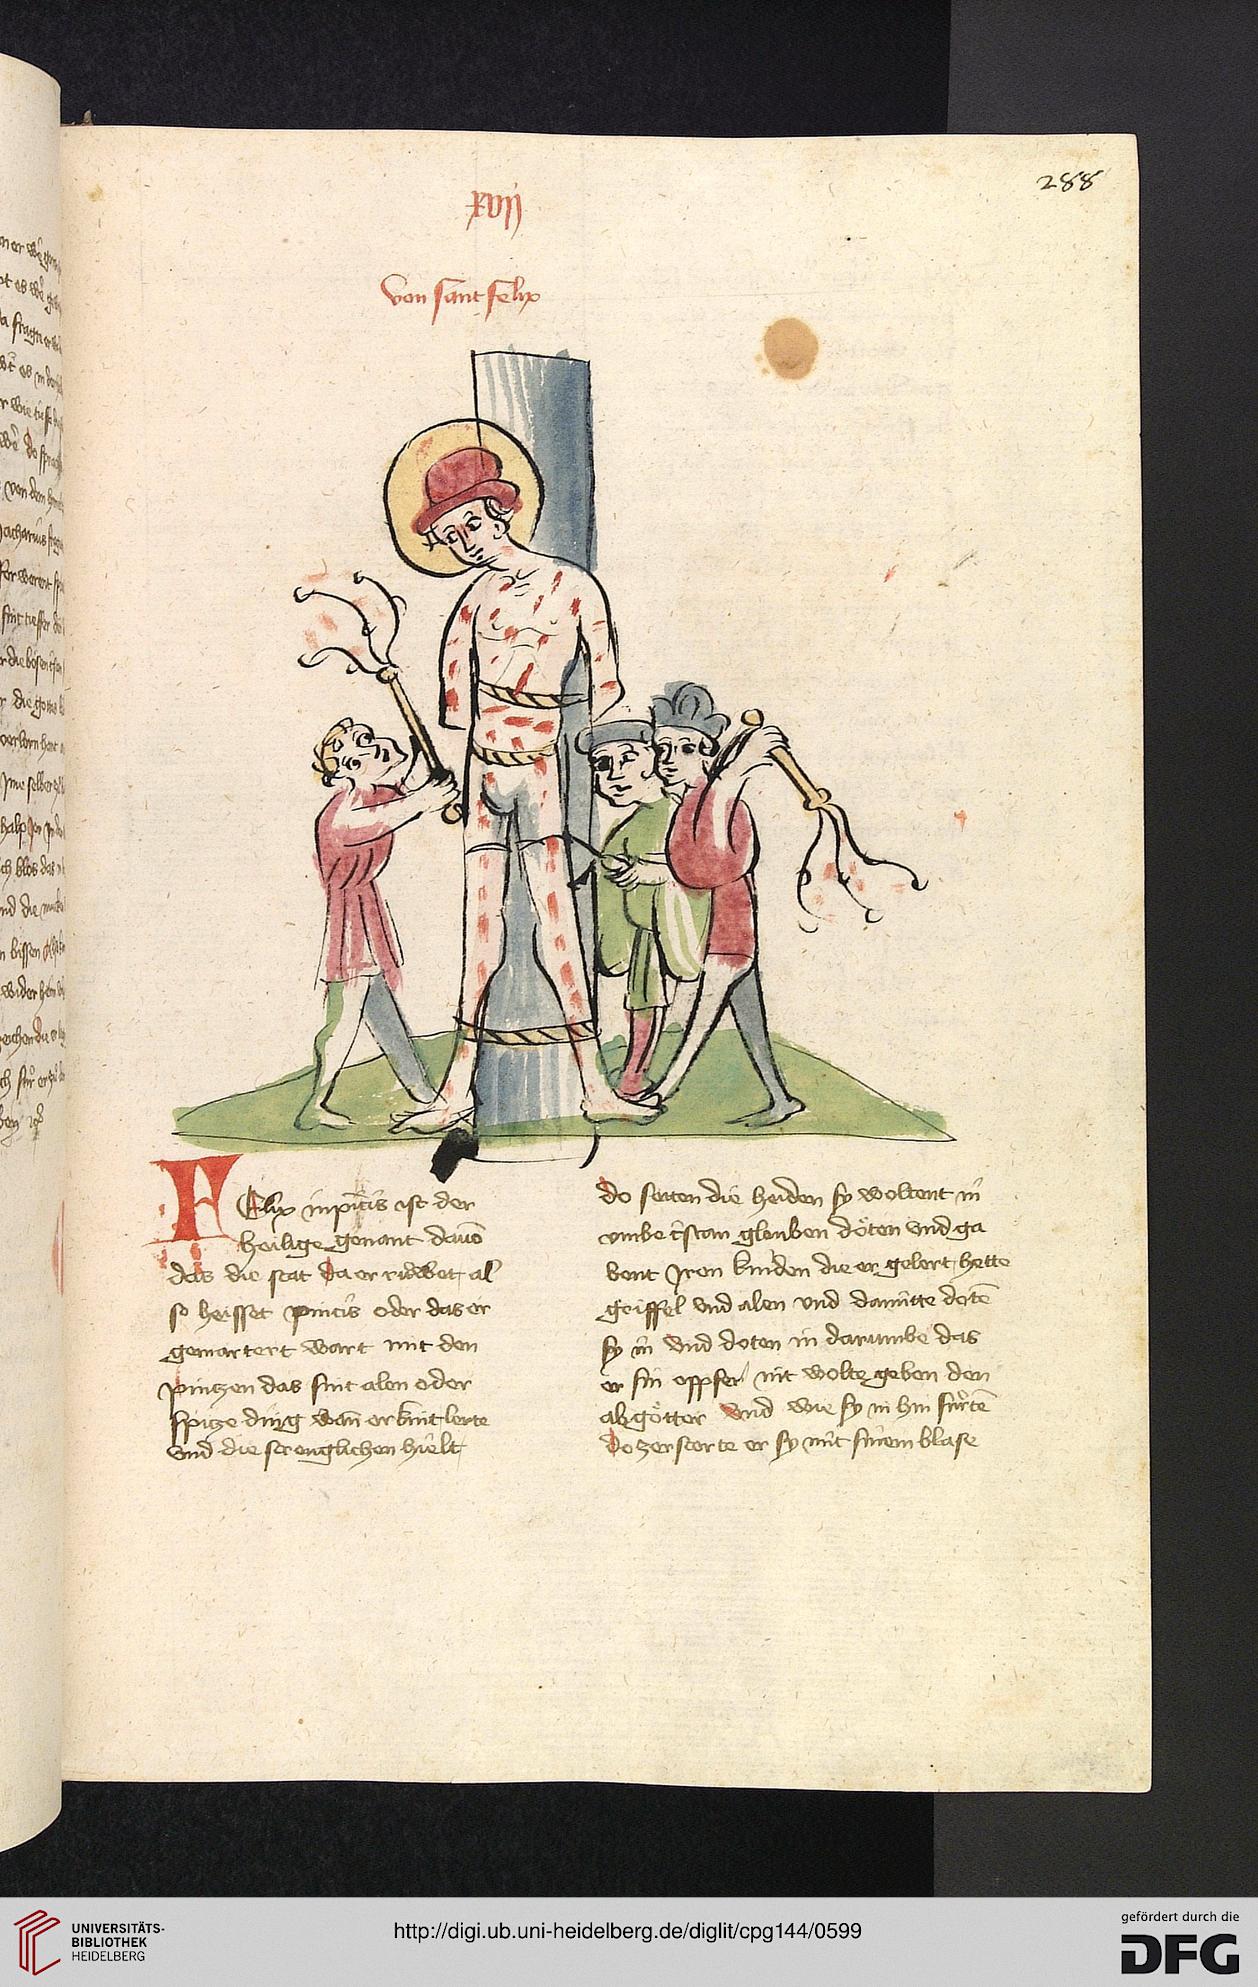 288
xvij
Von sant felix
FElix inpīcis ist der
heilige genant dauō
das die stat da er rüwet al
so heisset pincis oder das er
gemartert wart mit den
pintzen das sint alen oder
spitze ding wan er kint lerte
vnd die strenglichen hielt
do seiten die heiden sy woltent in
vmbe cristan glouben döten vnd ga
bent jren kinden die er gelert hette
griffel vnd alen vnd damitte dotē
sy in vnd doten in darumbe das
er sin oppfer nit wolte geben den
abgötter vnd wie sy in hin fürtē
do zerstorte er sy mit sinem blase
UNIVERSITÄTS-
BIBLIOTHEK
HEIDELBERG
http://digi.ub.uni-heidelberg.de/diglit/cpg144/0599
gefördert durch die
DFG